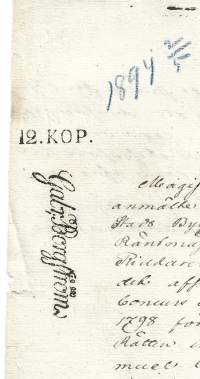 1894 2/5
12.KOP.
Gabr. Bergström
Magis
anmälte
Stads By
Räntmäs
Riddar
det aff
Concurs
1798 för
Rätten
muel